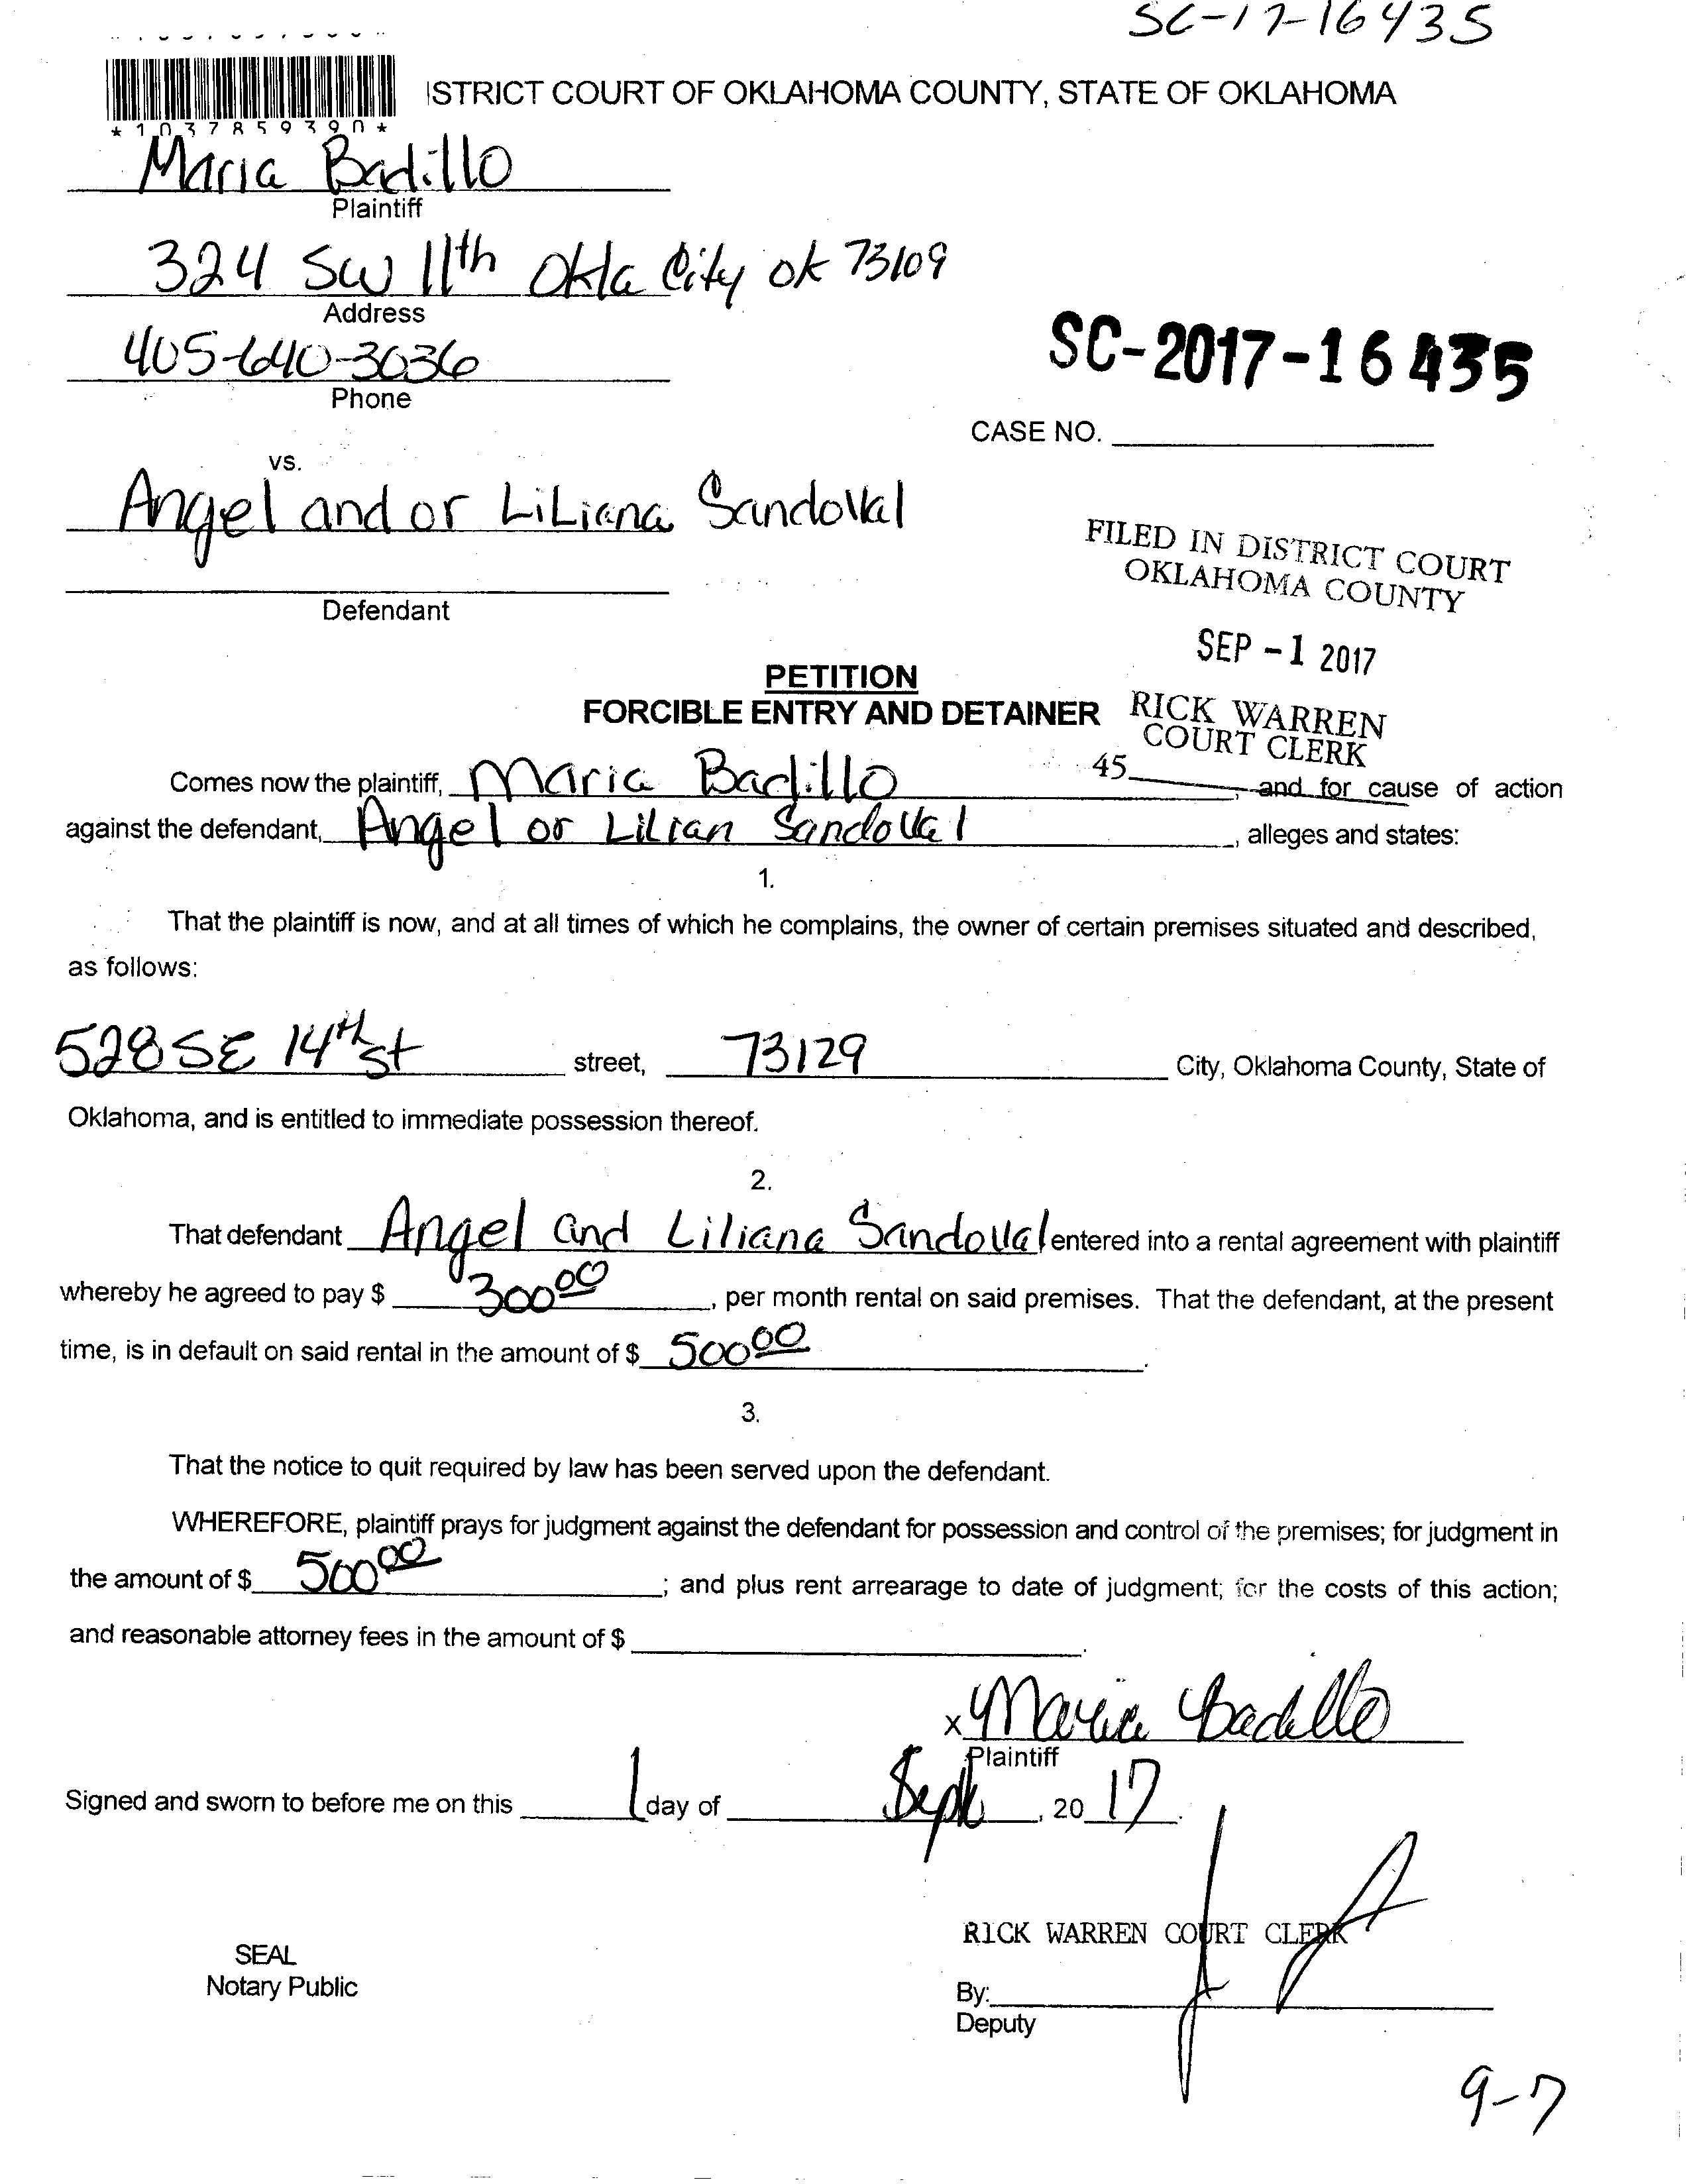 SC-17-16435
ISTRICT COURT OF OKLAHOMA COUNTY, STATE OF OKLAHOMA
*1037859390*
Maria Badillo
Plaintiff
324 SW 11th Okla City ok 73109
Address
405-640-3036
Phone
SC-2017-16435
CASE NO.
vs.
Angel and or LiLiana Sandoval
FILED IN DISTRICT COURT
OKLAHOMA COUNTY
Defendant
SEP -1 2017
PETITION
FORCIBLE ENTRY AND DETAINER
RICK WARREN
COURT CLERK
45
Comes now the plaintiff, Maria Badillo, and for cause of action
against the defendant, Angel or Lilian Sandoval, alleges and states:
1.
That the plaintiff is now, and at all times of which he complains, the owner of certain premises situated and described,
as follows:
528 SE 14th st street, 73129 City, Oklahoma County, State of
Oklahoma, and is entitled to immediate possession thereof.
2.
That defendant Angel and Liliana Sandoval entered into a rental agreement with plaintiff
whereby he agreed to pay $ 300 00, per month rental on said premises. That the defendant, at the present
time, is in default on said rental in the amount of $ 500 00.
3.
That the notice to quit required by law has been served upon the defendant.
WHEREFORE, plaintiff prays for judgment against the defendant for possession and control of the premises; for judgment in
the amount of $ 500 00; and plus rent arrearage to date of judgment; for the costs of this action;
and reasonable attorney fees in the amount of $ .
x Maria Badillo
Plaintiff
Signed and sworn to before me on this 1 day of Sept, 20 17.
RICK WARREN COURT CLERK
SEAL
Notary Public
By:
Deputy
9-7